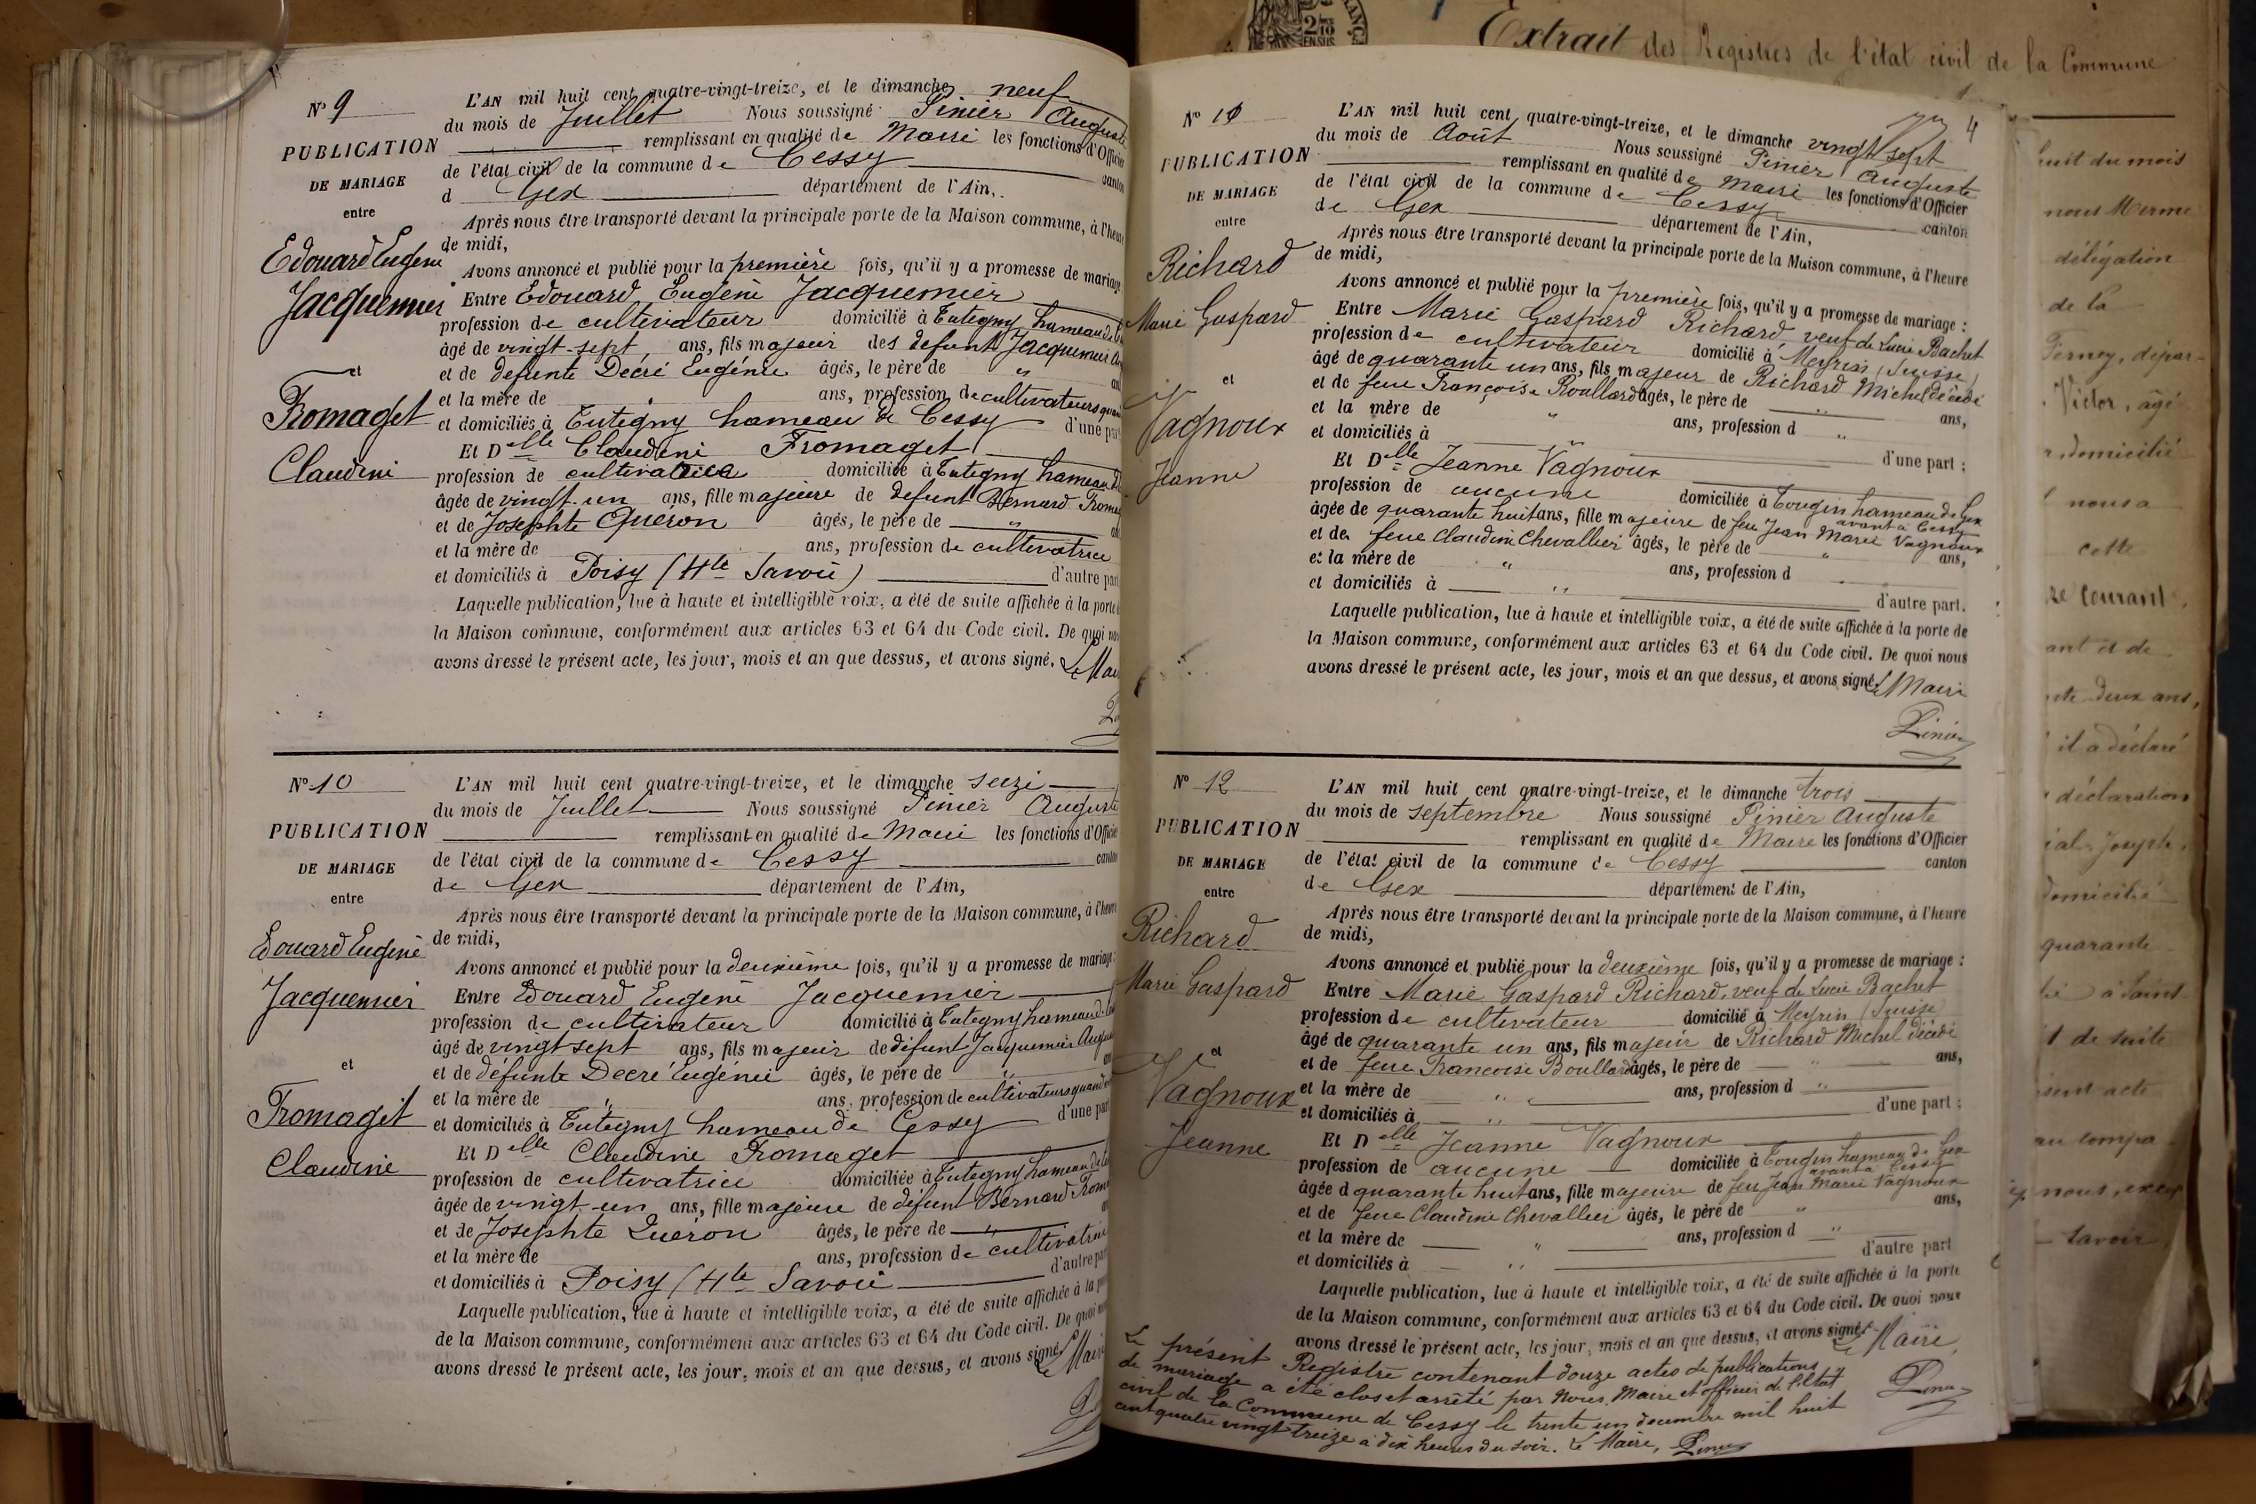 Nº 9
PUBLICATION
DE MARIAGE
entre
Edouard Eugène
Jacquemier
et
Fromaget
Claudine
L'AN mil huit cent quatre-vingt-treize, et le dimanche neuf
du mois de Juillet Nous soussigné Pinier Auguste
remplissant en qualité de Maire les fonctions d'Officier
de l'état civil de la commune de Cessy canton
d Gex département de l'Ain,
Après nous être transporté devant la principale porte de la Maison commune, à l'heure
de midi,
Avons annoncé et publié pour la première fois, qu'il y a promesse de mariage
Entre Edouard Eugène Jacquemier
profession de cultivateur domicilié à Tutegny hameau de
âgé de vingt-sept ans, fils majeur des defunt Jacquemier
et de defunte Decré Eugénie âgés, le père de "
et la mère de ans, profession de cultivateurs
et domiciliés à Tutegny hameau de Cessy d'une part
Et Delle Claudine Fromaget
profession de cultivatrice domiciliée à Tutegny hameau
âgée de vingt-un ans, fille majeure de defunt Bernard
et de Josephte Quéron âgés, le père de "
et la mère de ans, profession de cultivatrice
et domiciliés à Poisy (Hte Savoie) d'autre part
Laquelle publication, lue à haute et intelligible voix, a été de suite affichée à la porte
la Maison commune, conformément aux articles 63 et 64 du Code civil. De quoi
avons dressé le présent acte, les jour, mois et an que dessus, et avons signé. Le
Nº 10
PUBLICATION
DE MARIAGE
entre
Edouard Eugène
Jacquemier
et
Fromaget
Claudine
L'AN mil huit cent quatre-vingt-treize, et le dimanche seize
du mois de Juillet Nous soussigné Pinier Auguste
remplissant en qualité de Maire les fonctions d'Officier
de l'état civil de la commune de Cessy canton
de Gex département de l'Ain,
Après nous être transporté devant la principale porte de la Maison commune, à l'heure
de midi,
Avons annoncé et publié pour la deuxième fois, qu'il y a promesse de mariage
Entre Edouard Eugène Jacquemier
profession de cultivateur domicilié à Tutegny hameau de
âgé de vingt sept ans, fils majeur de défunt Jacquemier
et de défunte Decré Eugénie âgés, le père de "
et la mère de " ans, profession de cultivateurs
et domiciliés à Tutegny hameau de Cessy d'une part
Et Delle Claudine Fromaget
profession de cultivatrice domiciliée à Tutegny hameau de
âgée de vingt-un ans, fille majeure de défunt Bernard
et de Josephte Quéron âgés, le père de "
et la mère de ans, profession de cultivatrice
et domiciliés à Poisy (Hte Savoie d'autre part
Laquelle publication, lue à haute et intelligible voix, a été de suite affichée à la
de la Maison commune, conformément aux articles 63 et 64 du Code civil. De quoi
avons dressé le présent acte, les jour, mois et an que dessus, et avons signé Le
Nº 11
4
PUBLICATION
DE MARIAGE
entre
Richard
Marie Gaspard
et
Vagnoux
Jeanne
L'AN mil huit cent quatre-vingt-treize, et le dimanche vingt sept
du mois de Août Nous soussigné Pinier Auguste
remplissant en qualité de Maire les fonctions d'Officier
de l'état civil de la commune de Cessy canton
de Gex département de l'Ain,
Après nous être transporté devant la principale porte de la Maison commune, à l'heure
de midi,
Avons annoncé et publié pour la première fois, qu'il y a promesse de mariage :
Entre Marie Gaspard Richard, veuf de Lucie Bachet
profession de cultivateur domicilié à Meyrin (Suisse)
âgé de quarante un ans, fils majeur de Richard Michel décédé
et de feue Françoise Roullard âgés, le père de " ans,
et la mère de " ans, profession d "
et domiciliés à " d'une part :
Et Delle Jeanne Vagnoux
profession de aucune domiciliée à Tougin hameau de Gex
avant à Cessy
âgée de quarante huit ans, fille majeure de feu Jean Marie Vagnoux
et de feue Claudine Chevallier âgés, le père de " ans,
et la mère de " ans, profession d
et domiciliés à " d'autre part.
Laquelle publication, lue à haute et intelligible voix, a été de suite affichée à la porte de
la Maison commune, conformément aux articles 63 et 64 du Code civil. De quoi nous
avons dressé le présent acte, les jour, mois et an que dessus, et avons signé. Le Maire
Pinier
Nº 12
PUBLICATION
DE MARIAGE
entre
Richard
Marie Gaspard
et
Vagnoux
Jeanne
L'AN mil huit cent quatre-vingt-treize, et le dimanche trois
du mois de septembre Nous soussigné Pinier Auguste
remplissant en qualité de Maire les fonctions d'Officier
de l'état civil de la commune de Cessy canton
de Gex département de l'Ain,
Après nous être transporté devant la principale porte de la Maison commune, à l'heure
de midi,
Avons annoncé et publié pour la deuxième fois, qu'il y a promesse de mariage :
Entre Marie Gaspard Richard, veuf de Lucie Bachet
profession de cultivateur domicilié à Meyrin (Suisse)
âgé de quarante un ans, fils majeur de Richard Michel décédé
et de feue Françoise Boullard âgés, le père de ans,
et la mère de " ans, profession d "
et domiciliés à " d'une part :
Et Delle Jeanne Vagnoux
profession de aucune domiciliée à Tougin hameau de Gex
avant à Cessy
âgée d quarante huit ans, fille majeure de feu Jean Marie Vagnoux
et de feue Claudine Chevallier âgés, le père de " ans,
et la mère de " ans, profession d "
et domiciliés à " d'autre part
Laquelle publication, lue à haute et intelligible voix, a été de suite affichée à la porte
de la Maison commune, conformément aux articles 63 et 64 du Code civil. De quoi nous
avons dressé le présent acte, les jour, mois et an que dessus, et avons signé. Le Maire,
Pinier
Le présent Registre contenant douze actes de publications
de mariage a été clos et arrêté par Nous, Maire et officier de l'Etat
civil de la Commune de Cessy le trente un decembre mil huit
cent quatre vingt treize à dix heures du soir. Le Maire, Pinier
Extrait des Registres de l'état civil de la Commune
huit du mois
nous
délégation
de la
Ferney, dépar-
Victor, âgé
domicilié
nous a
cette
courant
ant et de
deux ans,
il a déclaré
déclaration
Joseph,
domicilié
quarante
à Saint
t de suite
sent acte
au compa
nous, excep
Savoir